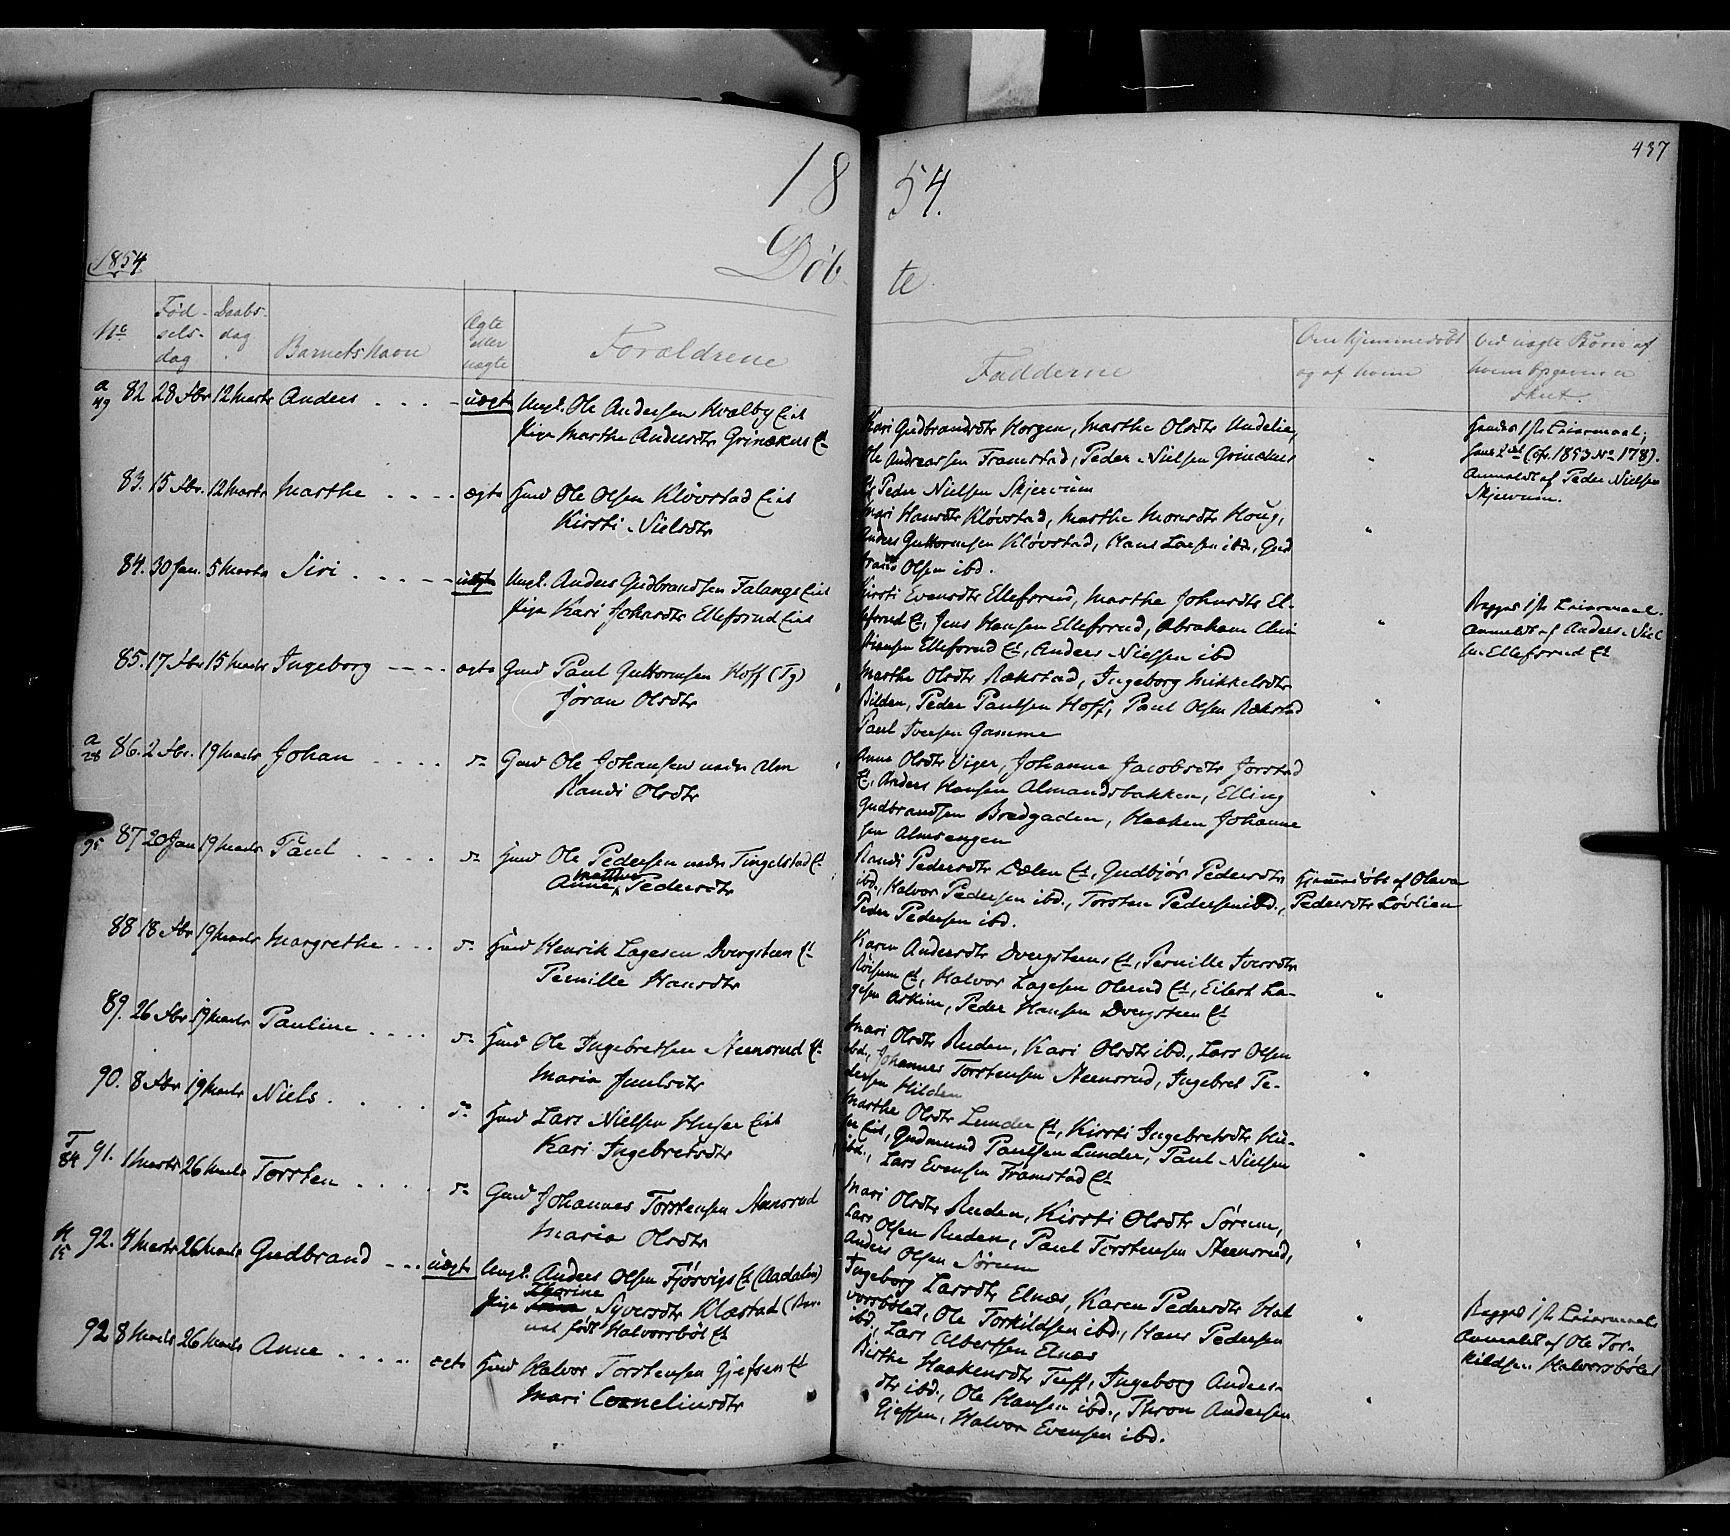 437
18 54.
Døb te
1854
No
Fød-
sels-
dag
Daabs-
dag
Barnets Navn
Ægte
eller
uægte
Forældrene
Fadderne
Om hjemmedøbt
og af hvem
Ved uægte Børn af
hvem Opgaven er
skeet.
a
49
82 28 Fbr 12 Marts Anders . . . . uægte Ungk. Ole Andersen Kvælby Eiet
Pige Marthe Andersdtr Grinækers Et
Kari Gudbrandsdtr Horgen, Marthe Olsdtr Undelien,
Ole Andreassen Framstad, Peder Nielsen Grinækers
Et, Peder Nielsen Skjervum
"
Faders 1ste Leiermaal;
hans 2det (cfr. 1853 No 178).
Anmeldt af Peder Nielsen
Skjervum.
83. 15 Fbr. 12 Marts Marthe . . . . ægte Gmd Ole Olsen Kløvstad Eiet
Kirsti Nielsdtr
Mari Hansdtr Kløvstad, Marthe Monsdtr Houg,
Anders Guttormsen Kløvstad, Hans Larsen ibd., Gud
brand Olsen ibd.
"
84. 30 Jan. 5 Marts Siri . . . . . uægte Ungk. Anders Gudbrandsen Falangs Eiet
Pige Kari Johnsdtr Ellefsrud Eiet
Kirsti Evensdtr Ellefsrud, Marthe Johnsdtr El-
lefsrud Et, Jens Hansen Ellefsrud, Abraham Chri
stiansen Ellefsrud Et, Anders Nielsen ibd
"
Begges 1ste Leiermaal.
Anmeldt af Anders Niel
sen Ellefsrud Et
85. 17 Fbr 15 Marts Ingeborg . . . . ægte Gmd Paul Guttormsen Hoff (Tg)
Jøran Olsdtr
Marthe Olsdtr Rækstad, Ingeborg Mikkelsdtr
Bilden, Peder Paulsen Hoff, Paul Olsen Rækstad
Paul Iversen Gamme
"
a
28
86. 2 Fbr. 19 Marts Johan . . . . do Gmd Ole Johansen under Alm
Randi Olsdtr
Anne Olsdtr Viger, Johanne Jacobsdtr Jorstad
Et, Anders Hansen Almandsbakken, Elling
Gudbrandsen Bredgaden, Haaken Johanne
sen Almsengen
"
95
87 20 Jan 19 Marts Paul . . . . do Gmd Ole Pedersen under Tingelstad Et
Anne Mathea Pedersdtr
Randi Pedersdtr Dælen Et, Gudbjør Pedersdtr
ibd., Halvor Pedersen ibd., Torsten Pedersen ibd.,
Peder Pedersen ibd.
Hjemmedøbt af Oleva
Pedersdtr Løvlien
88 18 Fbr 19 Marts Margrethe . . . do Gmd Henrik Lagesen Dvergsteen Et
Pernille Hansdtr
Karen Andersdtr Dvergsteens Et, Pernille Iversdtr
Røisum Et, Halvor Lagesen Olerud Et, Eilert La-
gesen Askim, Peder Hansen Dvergsteen Et
"
89. 26 Fbr 19 Marts Pauline . . . . do Gmd Ole Ingebretsen Steensrud Et
Maria Juulsdtr
Mari Olsdtr Ruden, Kari Olsdtr ibd., Lars Olsen
ibd., Johannes Torstensen Steensrud, Ingebret Pe-
dersen Hilden
"
90. 8 Fbr 19 Marts Niels . . . . do Gmd Lars Nielsen Huser Eiet
Kari Ingebretsdtr
Marthe Olsdtr Lunder Et, Kirsti Ingebretsdtr Hu-
ser Eiet, Gudmund Paulsen Lunder, Paul Nielsen
ibd., Lars Evensen Framstad Et
"
T
84
91. 1 Marts 26 Marts Torsten . . . . do Gmd Johannes Torstensen Steensrud
Maria Olsdtr
Mari Olsdtr Ruden, Kirsti Olsdtr Sørum,
Lars Olsen Ruden, Paul Torstensen Steensrud,
Anders Olsen Sørum
"
K
15
92. 4 Marts 26 Marts Gudbrand . . . uægte Ungk. Anders Olsen Fjørvigs Et (Aadalen)
Pige Thorine Syversdtr Klæstad (Bar-
net født Halvorsbøl Et
Ingeborg Larsdtr Elnæs, Karen Pedersdtr Hal
vorsbølet, Ole Torkildsen ibd., Hans Pedersen
ibd., Lars Albertsen Elnæs
"
Begges 1ste Leiermaal
Anmeldt af Ole Tor-
kildsen Halvorsbølet
92 8 Marts 26 Marts Anne . . . . . ægte Gmd Halvor Torstensen Gjefsen Et
Mari Corneliusdtr
Birthe Haakensdtr Tuff, Ingeborg Anders-
dtr ibd., Ole Hansen ibd., Thron Andersen
Gjefsen, Halvor Evensen ibd.
"